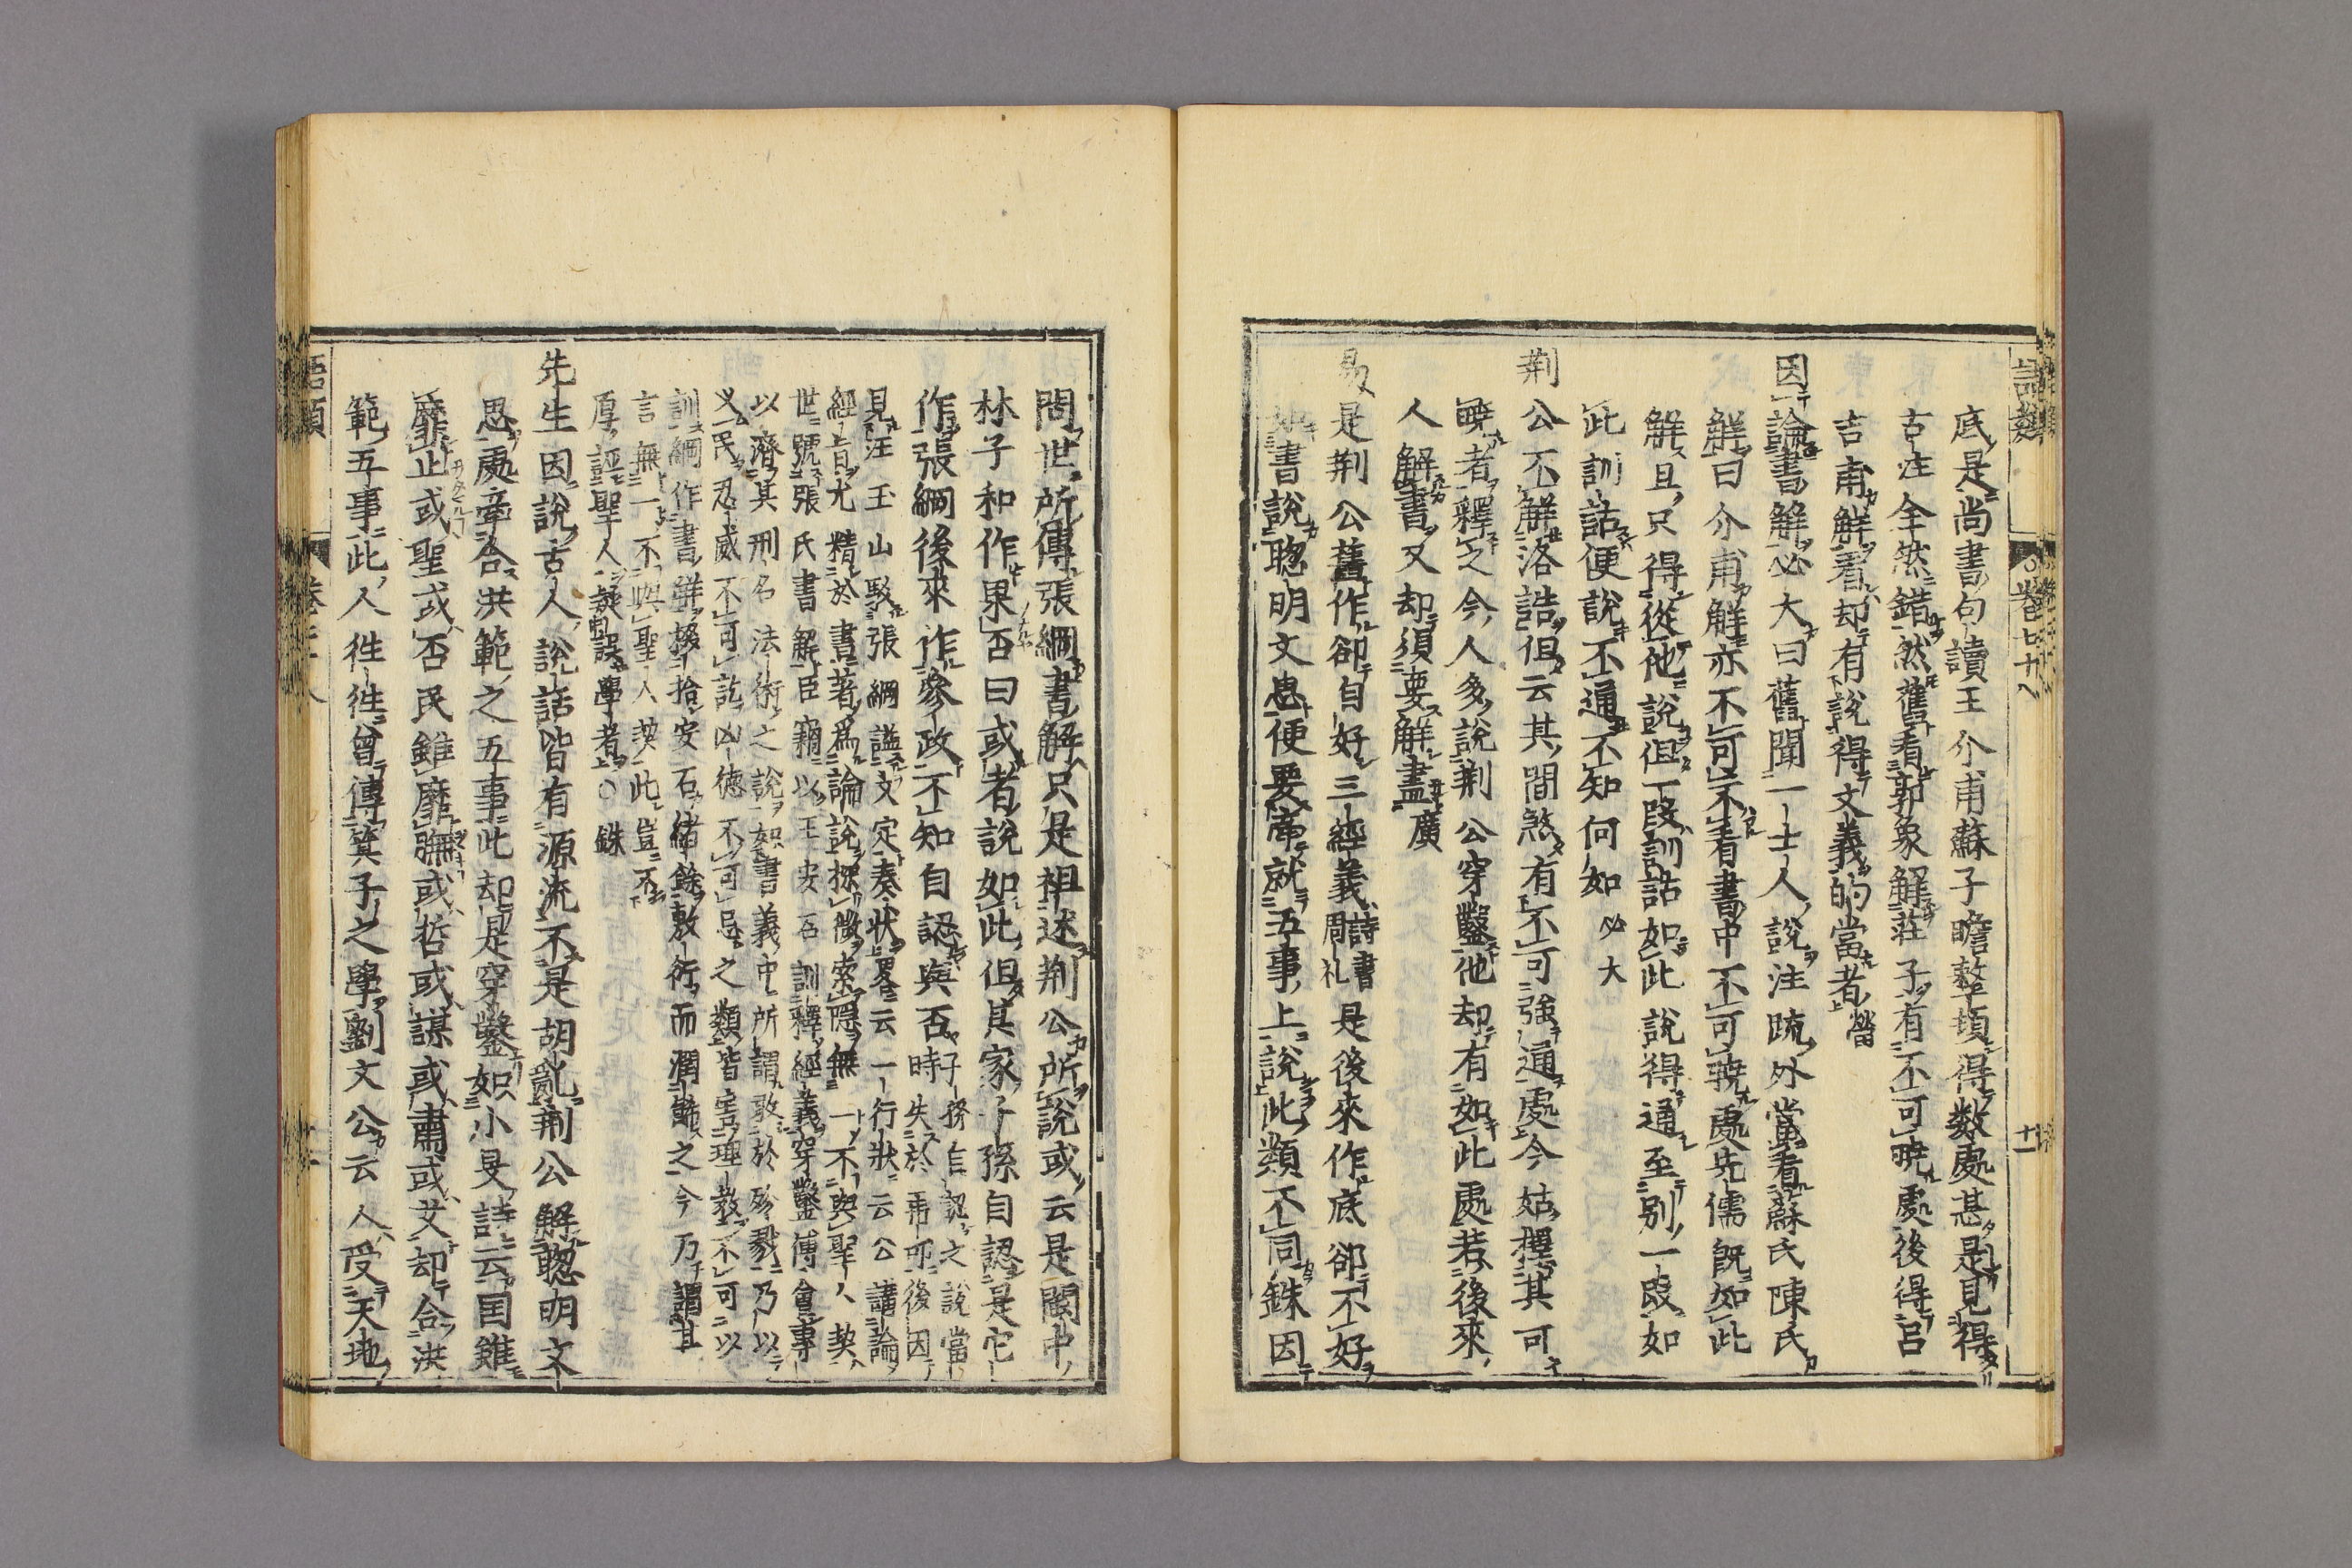 語類 卷七十八 十一
底是尚書句讀王介甫蘇子瞻整頓得数處甚是見得
古注全然錯然舊看郭象解莊子有不可曉處後得呂
吉甫解看却有說得文義的當者
因論書解必大曰舊聞一士人說注疏外當看蘇氏陳氏
解曰介甫解亦不可不看書中不可曉處先儒既如此
解且只得從他說但一段訓詁如此說得通至別一段如
此訓詁便說不通不知何如必大
荆公不解洛誥但云其間煞有不可強通處今姑擇其可
曉者釋之今人多說荆公穿鑿他却有如此處若後來
人解書又却須要解盡廣
易是荆公舊作卻自好三經義詩書周礼是後來作底卻不好
如書說聰明文思便要牽就五事上說此類不同銖因
問世所傳張綱書解只是祖述荆公所說或云是閩中
林子和作果否曰或者說如此但其家子孫自認是它
作張綱後來作參政不知自認與否子孫自認之說當時失於再叩後因
見汪玉山駁張綱謚文定奏狀畧云一行狀云公講論
經旨尤精於書著爲論說探微索隱無一不與聖人契
世號張氏書解臣竊以王安石訓釋經義穿鑿傅會專
以濟其刑名法術之說如書義中所謂敢於殄戮乃以
乂民忍威不可訖凶徳不可忌之類皆害理教不可以
訓綱作書解掇拾安石緒餘敷衍而潤飾之今乃謂其
言無一不與聖人契此豈不
厚誣聖人疑誤學者○銖
先生因說古人說話皆有源流不是胡亂荆公解聰明文
思處牽合洪範之五事此却是穿鑿如小旻詩云国雖
靡止或聖或否民雖靡膴或哲或謀或肅或艾却合洪
範五事此人徃徃曾傳箕子之學劉文公云人受天地
語類